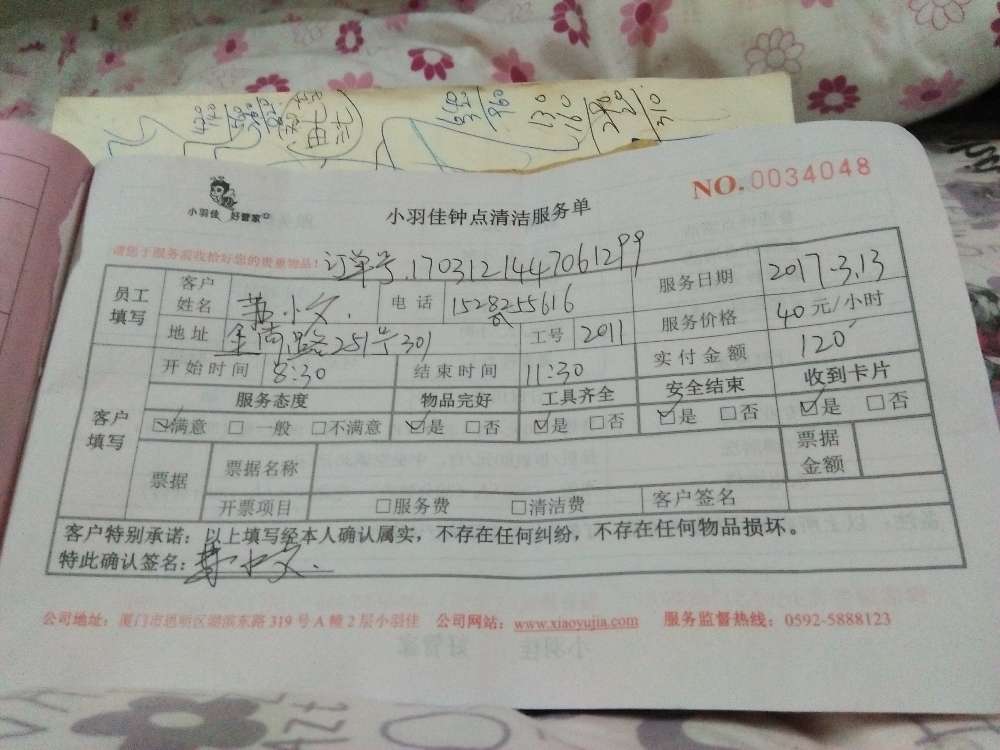 小羽佳 好管家
小羽佳钟点清洁服务单
NO.0034048
请您于服务前收拾好您的贵重物品!
订单号.1703121447061299
员工填写 客户姓名 小文. 电话 服务日期 2017.3.13
地址 金尚路251号301 工号 2011 服务价格 40元/小时
客户填写 开始时间 8:30 结束时间 11:30 实付金额 120
服务态度 物品完好 工具齐全 安全结束 收到卡片
☑满意 □一般 □不满意 ☑是 □否 ☑是 □否 ☑是 □否 ☑是 □否
票据 票据名称 票据金额
开票项目 □服务费 □清洁费 客户签名
客户特别承诺：以上填写经本人确认属实，不存在任何纠纷，不存在任何物品损坏。
特此确认签名: 小文.
公司地址：厦门市思明区湖滨东路319号A幢2层小羽佳 公司网站：www.xiaoyujia.com 服务监督热线：0592-5888123